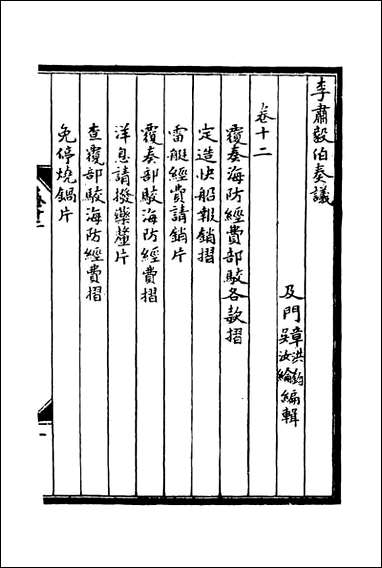 李肅毅伯奏議
及門章洪鈞吳汝綸編輯
卷十二
覆奏海防經費部駮各款摺
定造快船報銷摺
雷艇經費請銷片
覆奏部駮海防經費摺
洋息請撥藥釐片
查覆部駮海防經費摺
免停燒鍋片